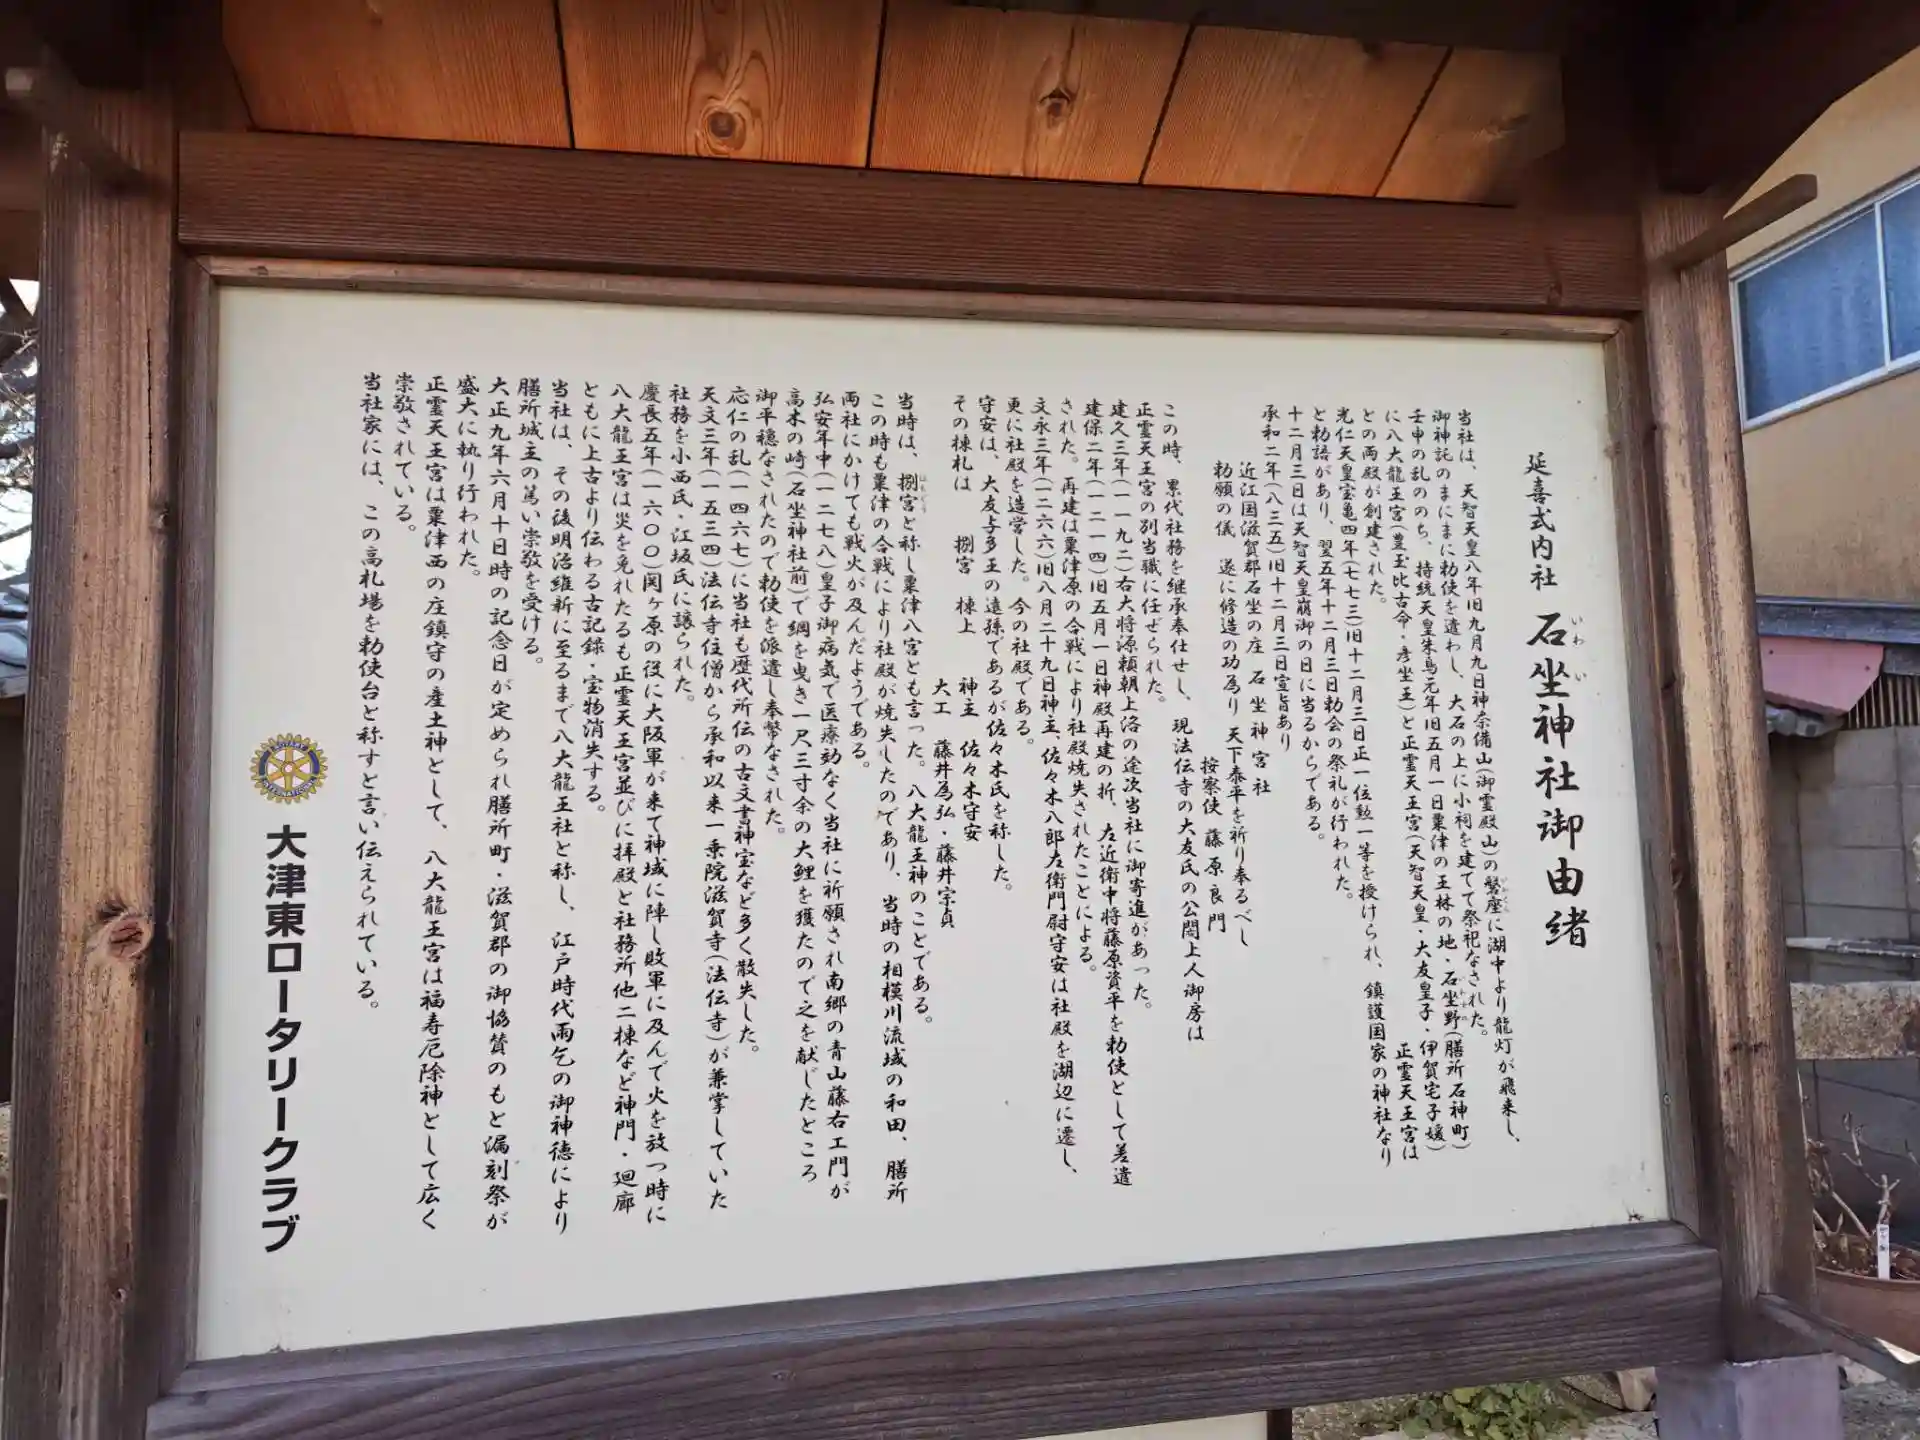 延喜式内社 石坐神社御由緒
いわい
当社は、天智天皇八年旧九月九日神奈備山(御霊殿山)の磐座に湖中より龍灯が飛来し、
御神託のまにまに勅使を遣わし、大石の上に小祠を建てて祭祀なされた。
壬申の乱ののち、持統天皇朱鳥元年旧五月一日粟津の王林の地・石坐野(膳所石神町)
に八大龍王宮(豊玉比古命・彦坐王)と正霊天王宮(天智天皇・大友皇子・伊賀宅子媛)
との両殿が創建された。 正霊天王宮は
光仁天皇宝亀四年(七七三)旧十二月三日正一位勲一等を授けられ、鎮護国家の神社なり
と勅語があり、翌五年十二月三日勅会の祭礼が行われた。
十二月三日は天智天皇崩御の日に当るからである。
承和二年(八三五)旧十二月三日宣旨あり
近江国滋賀郡石坐の庄 石坐神宮社
勅願の儀 遂に修造の功為り 天下泰平を祈り奉るべし
按察使 藤原良門
この時、累代社務を継承奉仕せし、現法伝寺の大友氏の公閏上人御房は
正霊天王宮の別当職に任ぜられた。
建久三年(一一九二)右大将源頼朝上洛の途次当社に御寄進があった。
建保二年(一二一四)旧五月一日神殿再建の折、左近衛中将藤原資平を勅使として差遣
された。再建は粟津原の合戦により社殿焼失されたことによる。
文永三年(一二六六)旧八月二十九日神主、佐々木八郎左衛門尉守安は社殿を湖辺に遷し、
更に社殿を造営した。今の社殿である。
守安は、大友与多王の遠孫であるが佐々木氏を称した。
その棟札は 捌宮 棟上 神主 佐々木守安
大工 藤井為弘・藤井宗貞
当時は、捌宮と称し粟津八宮とも言った。八大龍王神のことである。
この時も粟津の合戦により社殿が焼失したのであり、当時の相模川流域の和田、膳所
両社にかけても戦火が及んだようである。
弘安年中(一二七八)皇子御病気で医療効なく当社に祈願され南郷の青山藤右エ門が
高木の崎(石坐神社前)で綱を曳き一尺三寸余の大鯉を獲たので之を献じたところ
御平穏なされたので勅使を派遣し奉幣なされた。
応仁の乱(一四六七)に当社も歴代所伝の古文書神宝など多く散失した。
天文三年(一五三四)法伝寺住僧から承和以来一乗院滋賀寺(法伝寺)が兼掌していた
社務を小西氏・江坂氏に譲られた。
慶長五年(一六〇〇)関ヶ原の役に大阪軍が来て神域に陣し敗軍に及んで火を放つ時に
八大龍王宮は災を免れたるも正霊天王宮並びに拝殿と社務所他二棟など神門・廻廊
ともに上古より伝わる古記録・宝物消失する。
当社は、その後明治維新に至るまで八大龍王社と称し、江戸時代雨乞の御神徳により
膳所城主の篤い崇敬を受ける。
大正九年六月十日時の記念日が定められ膳所町・滋賀郡の御協賛のもと漏刻祭が
盛大に執り行われた。
正霊天王宮は粟津西の庄鎮守の産土神として、八大龍王宮は福寿厄除神として広く
崇敬されている。
当社家には、この高札場を勅使台と称すと言い伝えられている。
大津東ロータリークラブ
ROTARY INTERNATIONAL